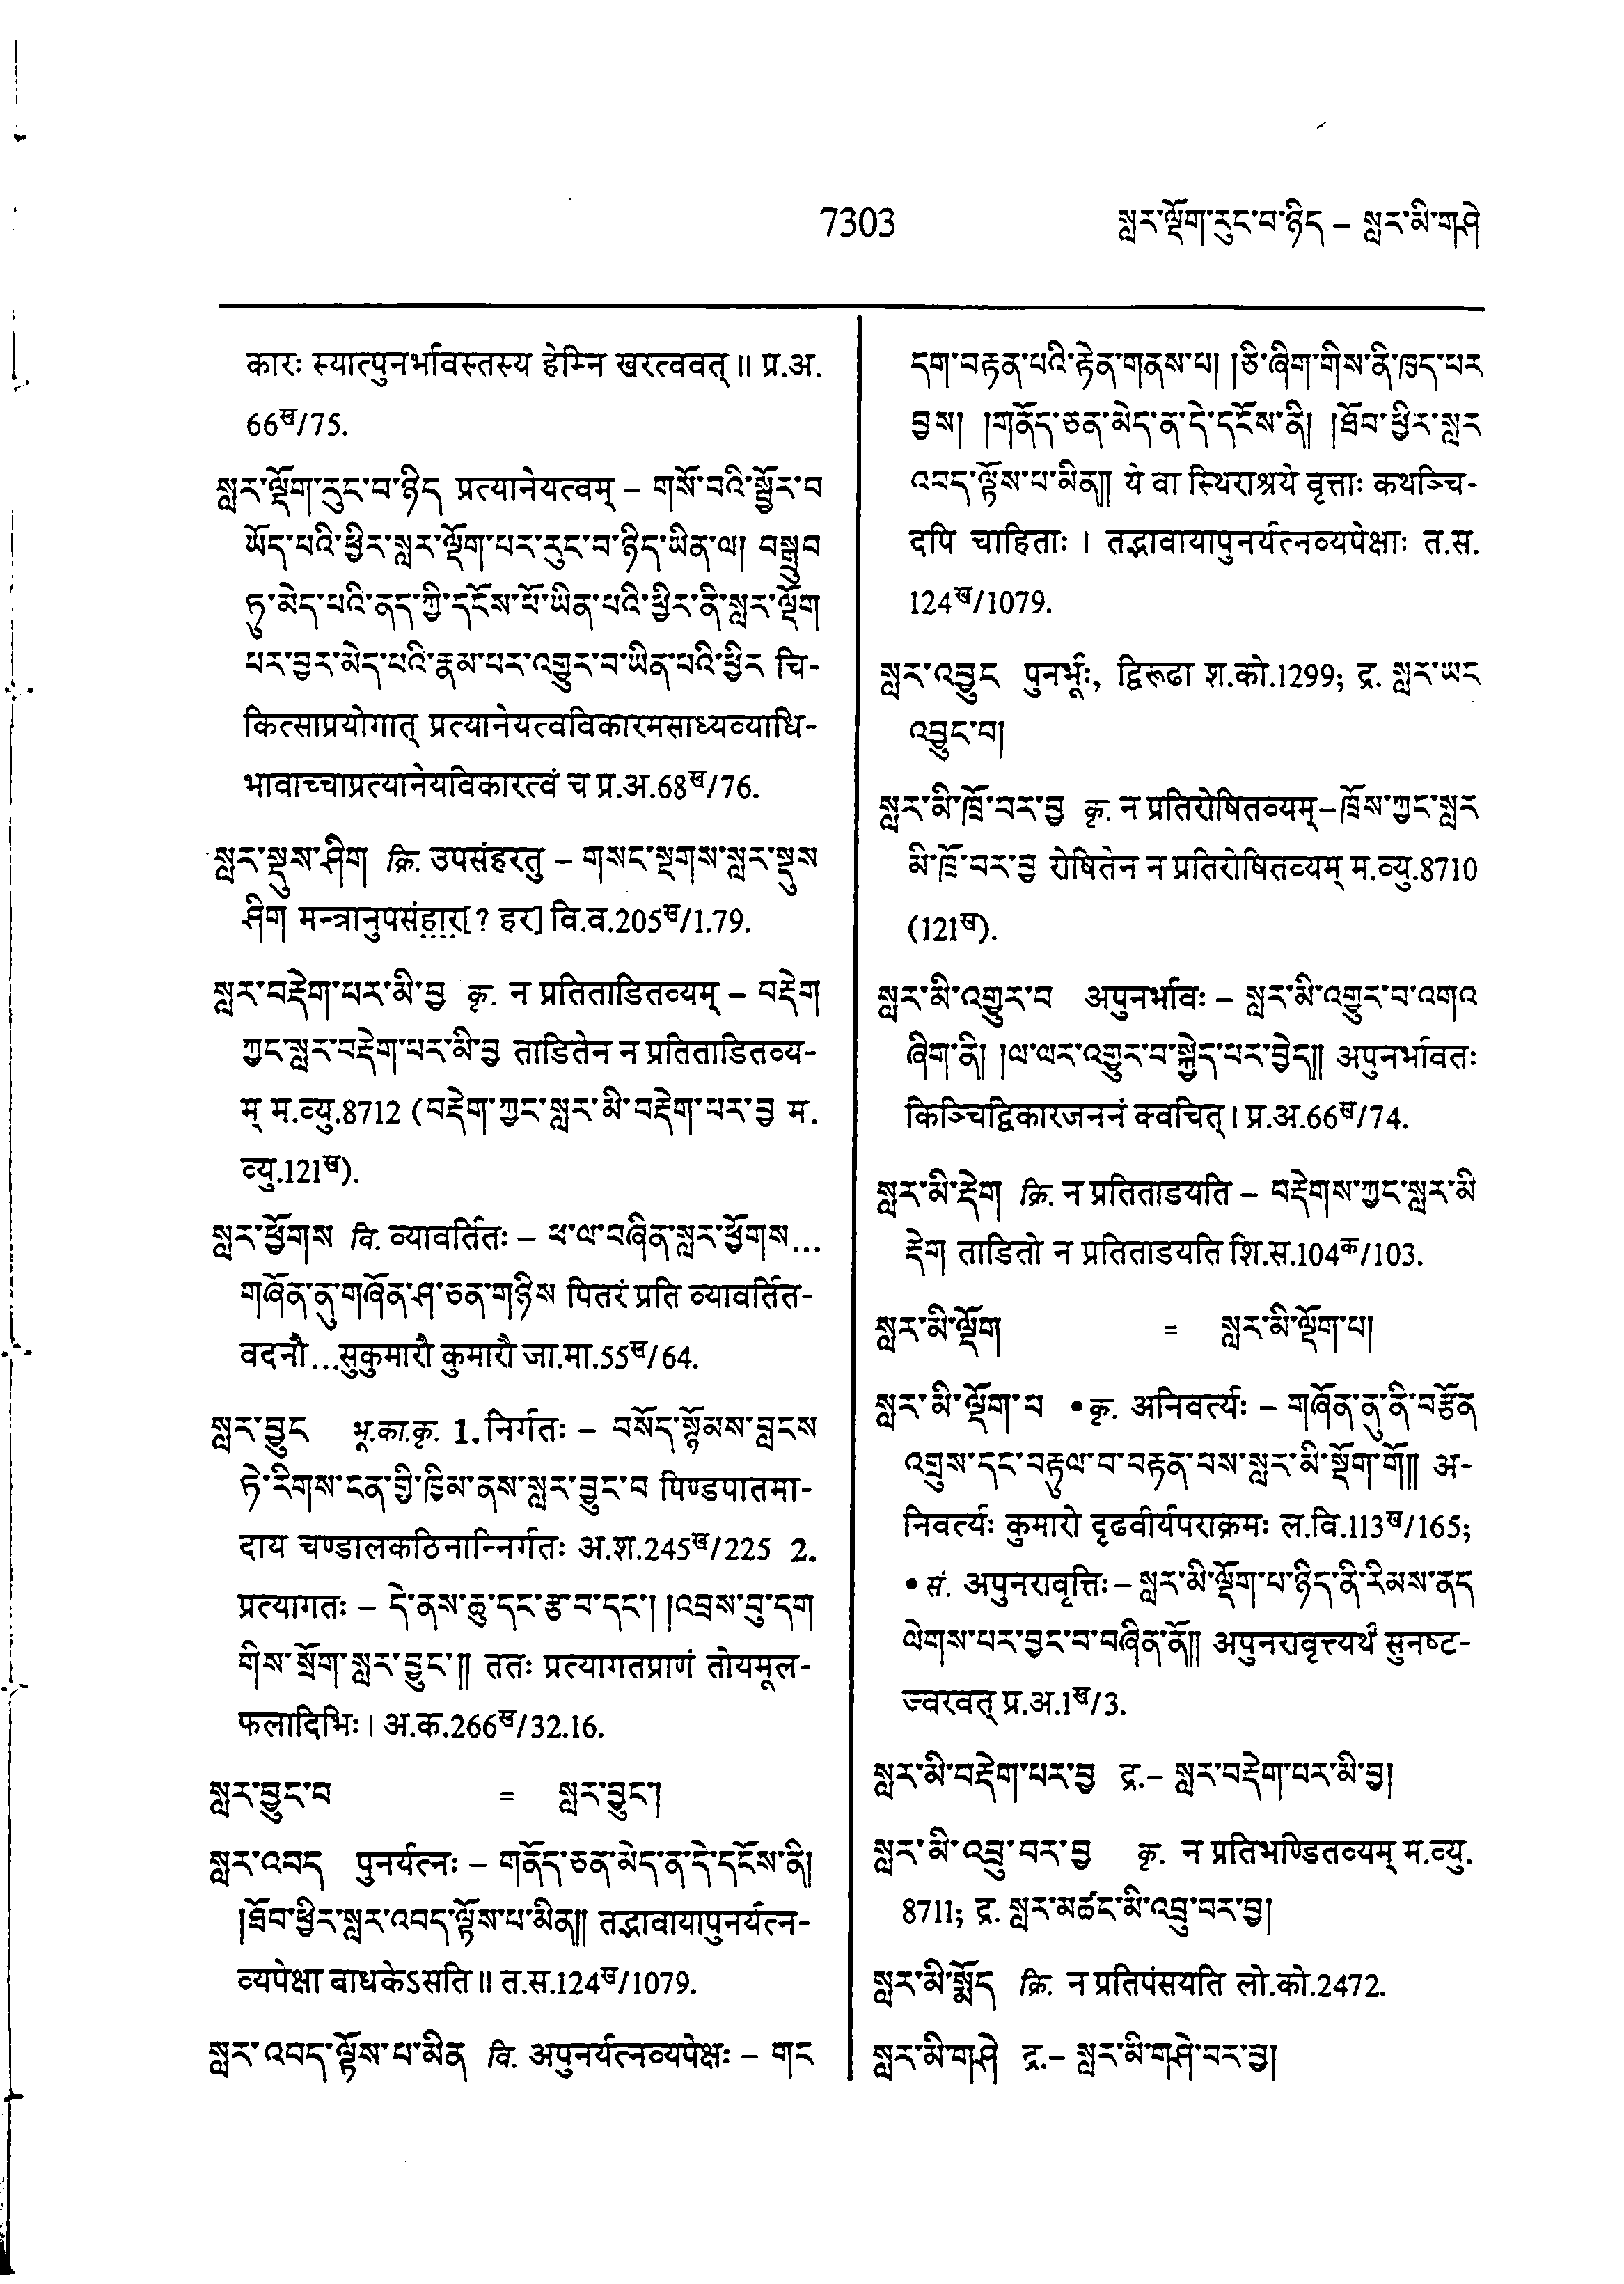 7303
སླར་ལྡོག་རུང་བ་ཉིད – སླར་མི་གཤེ
कारः स्यात्पुनर्भावस्तस्य हेम्नि खरत्ववत् ॥ प्र.अ.
66ख/75.
སླར་ལྡོག་རུང་བ་ཉིད प्रत्यानेयत्वम् – གསོ་བའི་སྦྱོར་བ
ཡོད་པའི་ཕྱིར་སླར་ལྡོག་པར་རུང་བ་ཉིད་ཡིན་ལ། བསྒྲུབ
ཏུ་མེད་པའི་ནད་ཀྱི་དངོས་པོ་ཡིན་པའི་ཕྱིར་ནི་སླར་ལྡོག
པར་བྱར་མེད་པའི་རྣམ་པར་འགྱུར་བ་ཡིན་པའི་ཕྱིར चि-
कित्साप्रयोगात् प्रत्यानेयत्वविकारमसाध्यव्याधि-
भावाच्चाप्रत्यानेयविकारत्वं च प्र.अ.68ख/76.
སླར་སྡུས་ཤིག क्रि. उपसंहरतु – གསང་སྔགས་སླར་སྡུས
ཤིག मन्त्रानुपसंहार[? हर] वि.व.205ख/1.79.
སླར་བརྡེག་པར་མི་བྱ कृ. न प्रतिताडितव्यम् – བརྡེག
ཀྱང་སླར་བརྡེག་པར་མི་བྱ ताडितेन न प्रतिताडितव्य-
म् म.व्यु.8712 (བརྡེག་ཀྱང་སླར་མི་བརྡེག་པར་བྱ म.
व्यु.121ख).
སླར་ཕྱོགས वि. व्यावर्तितः – ཕ་ལ་བཞིན་སླར་ཕྱོགས...
གཞོན་ནུ་གཞོན་ཤ་ཅན་གཉིས पितरं प्रति व्यावर्तित-
वदनौ ...सुकुमारौ कुमारौ जा.मा.55ख/64.
སླར་བྱུང भू.का.कृ. 1. निर्गतः – བསོད་སྙོམས་བླངས
ཏེ་རིགས་ངན་གྱི་ཁྱིམ་ནས་སླར་བྱུང་བ पिण्डपातमा-
दाय चण्डालकठिनान्निर्गतः अ.श.245ख/225 2.
प्रत्यागतः – དེ་ནས་ཆུ་དང་རྩ་བ་དང་། །འབྲས་བུ་དག
གིས་སྲོག་སླར་བྱུང་༎ ततः प्रत्यागतप्राणं तोयमूल-
फलादिभिः । अ.क.266ख/32.16.
སླར་བྱུང་བ = སླར་བྱུང་།
སླར་འབད पुनर्यत्नः – གནོད་ཅན་མེད་ན་དེ་དངོས་ནི།
།ཐོབ་ཕྱིར་སླར་འབད་ལྟོས་པ་མིན༎ तद्भावायापुनर्यत्न-
व्यपेक्षा बाधकेऽसति ॥ त.स.124ख/1079.
སླར་འབད་ལྟོས་པ་མིན वि. अपुनर्यत्नव्यपेक्षः – གང
དག་བརྟན་པའི་རྟེན་གནས་པ། །ཅི་ཞིག་གིས་ནི་ཁྱད་པར
བྱས། །གནོད་ཅན་མེད་ན་དེ་དངོས་ནི། །ཐོབ་ཕྱིར་སླར
འབད་ལྟོས་པ་མིན༎ ये वा स्थिराश्रये वृत्ताः कथञ्चि-
दपि चाहिताः । तद्भावायापुनर्यत्नव्यपेक्षाः त.स.
124ख/1079.
སླར་འབྱུང पुनर्भूः, द्विरूढा श.को.1299; द्र. སླར་ཡང
འབྱུང་བ།
སླར་མི་ཁྲོ་བར་བྱ कृ. न प्रतिरोषितव्यम्–ཁྲོས་ཀྱང་སླར
མི་ཁྲོ་བར་བྱ रोषितेन न प्रतिरोषितव्यम् म.व्यु.8710
(121ख).
སླར་མི་འགྱུར་བ अपुनर्भावः – སླར་མི་འགྱུར་བ་འགའ
ཞིག་ནི། །ལ་ལར་འགྱུར་བ་སྐྱེད་པར་བྱེད༎ अपुनर्भावतः
किञ्चिद्विकारजननं क्वचित् । प्र.अ.66ख/74.
སླར་མི་རྡེག क्रि. न प्रतिताडयति – བརྡེགས་ཀྱང་སླར་མི
རྡེག ताडितो न प्रतिताडयति शि.स.104क/103.
སླར་མི་ལྡོག = སླར་མི་ལྡོག་པ།
སླར་མི་ལྡོག་པ • कृ. अनिवर्त्यः – གཞོན་ནུ་ནི་བརྩོན
འགྲུས་དང་བརྟུལ་བ་བརྟན་པས་སླར་མི་སྡོག་གོ༎ अ-
निवर्त्यः कुमारो दृढवीर्यपराक्रमः ल.वि.113ख/165;
• सं. अपुनरावृत्तिः – སླར་མི་ལྡོག་པ་ཉིད་ནི་རིམས་ནད
ལེགས་པར་བྱང་བ་བཞིན་ནོ༎ अपुनरावृत्त्यर्थं सुनष्ट-
ज्वरवत् प्र.अ.1ख/3.
སླར་མི་བརྡེག་པར་བྱ द्र.– སླར་བརྡེག་པར་མི་བྱ།
སླར་མི་འབྲུ་བར་བྱ कृ. न प्रतिभण्डितव्यम् म.व्यु.
8711; द्र. སླར་མཚང་མི་འབྲུ་བར་བྱ།
སླར་མི་སྨོད क्रि. न प्रतिपंसयति लो.को.2472.
སླར་མི་གཤེ द्र.– སླར་མི་གཤེ་བར་བྱ།